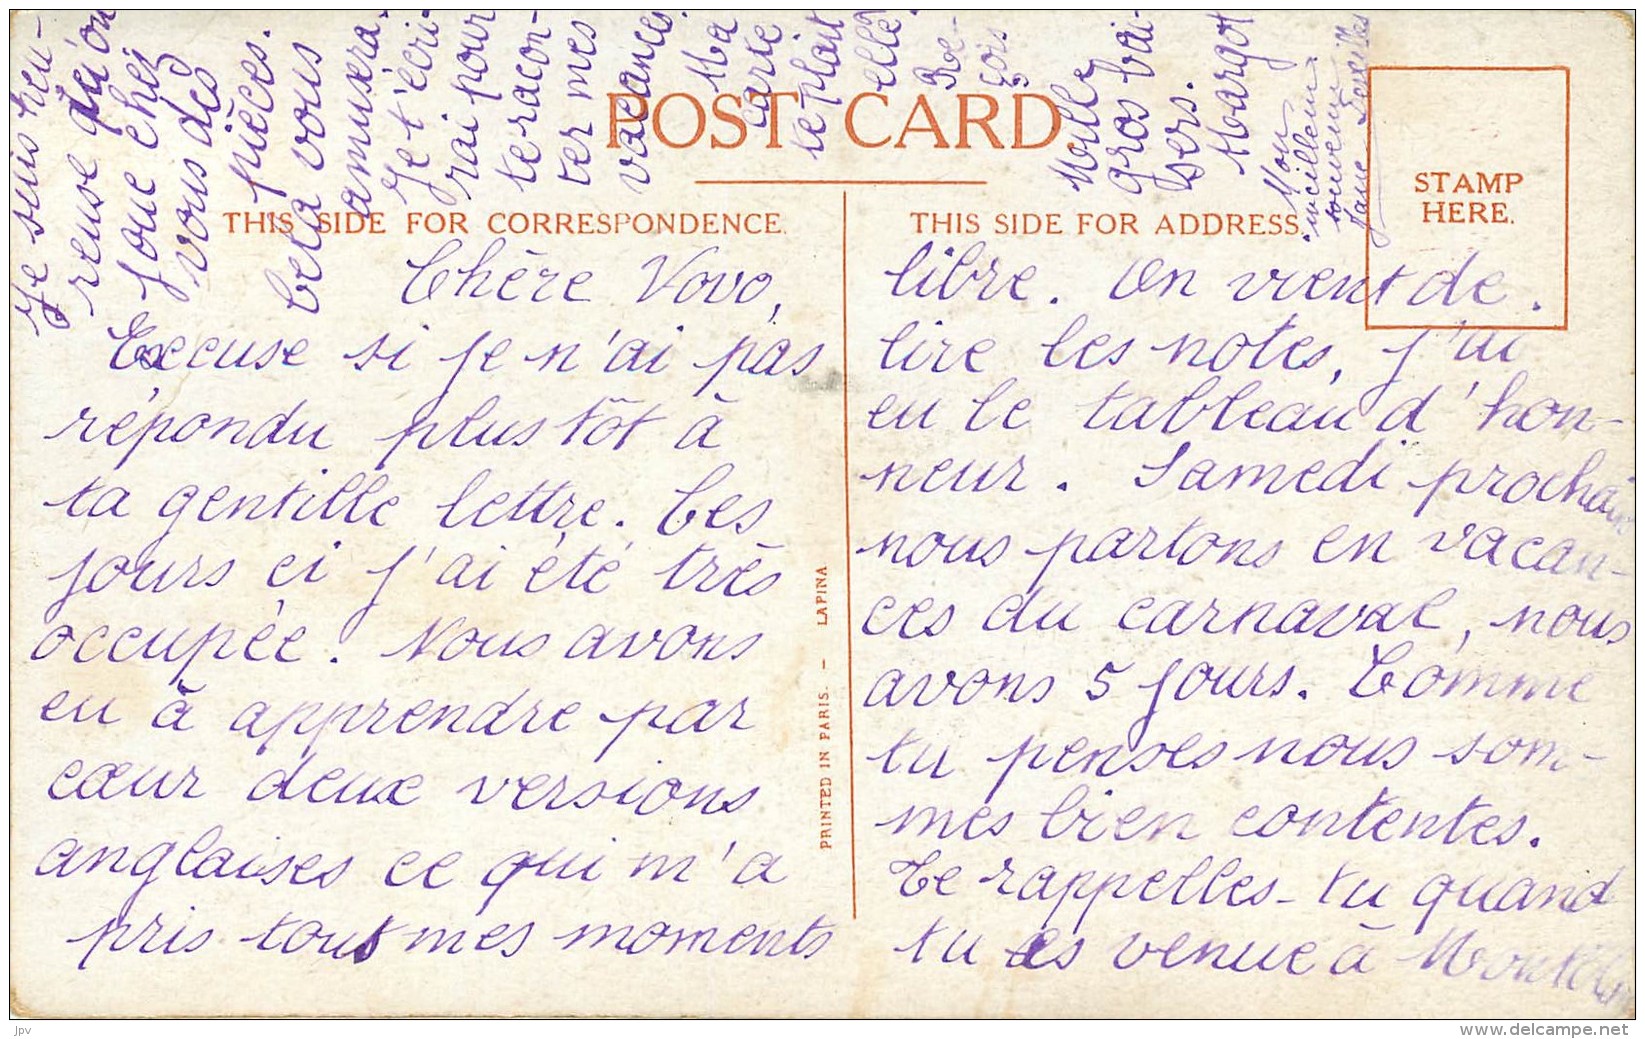 POST CARD.
THIS SIDE FOR CORRESPONDENCE.
THIS SIDE FOR ADDRESS.
STAMP
HERE.
Chère Vovo,
Excuse si je n'ai pas
répondu plus tôt à
ta gentille lettre. Ces
jours ci j'ai été très
occupée. Nous avons
eu à apprendre par
cœur deux versions
anglaises ce qui m'a
pris tous mes moments
libre. On vient de
lire les notes, j'ai
eu le tableau d'hon-
neur. Samedi prochain
nous partons en vacan-
ces du carnaval, nous
avons 5 jours. Comme
tu penses nous som-
mes bien contentes.
Te rappelles-tu quand
tu es venue à
Je suis heu-
reuse qu'on
joue chez
vous des
pièces.
Cela vous
amusera.
Je t'écri-
rai pour
te racon-
ter mes
vacances.
Ma
carte
te plait
elle?
Re-
çois
Mille
gros bai-
sers.
Margot
Mon
meilleur
souvenir
Jane
PRINTED IN PARIS. — LAPINA
jpv
www.delcampe.net